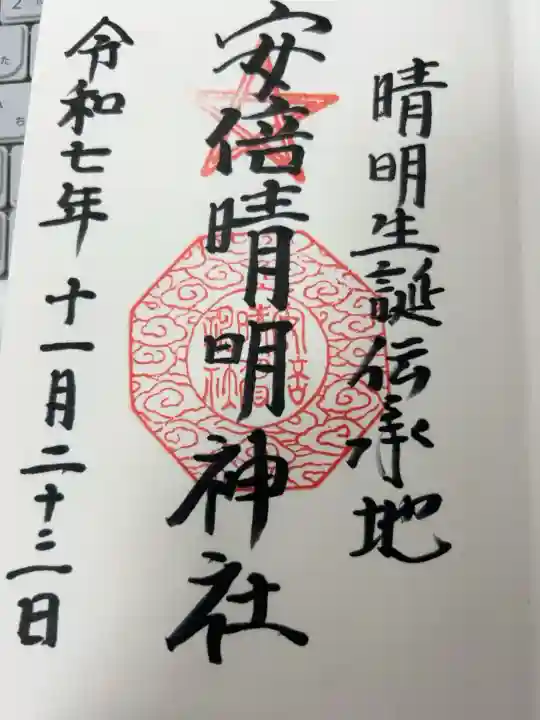 晴明生誕伝承地
安倍晴明神社
令和七年 十一月二十三日